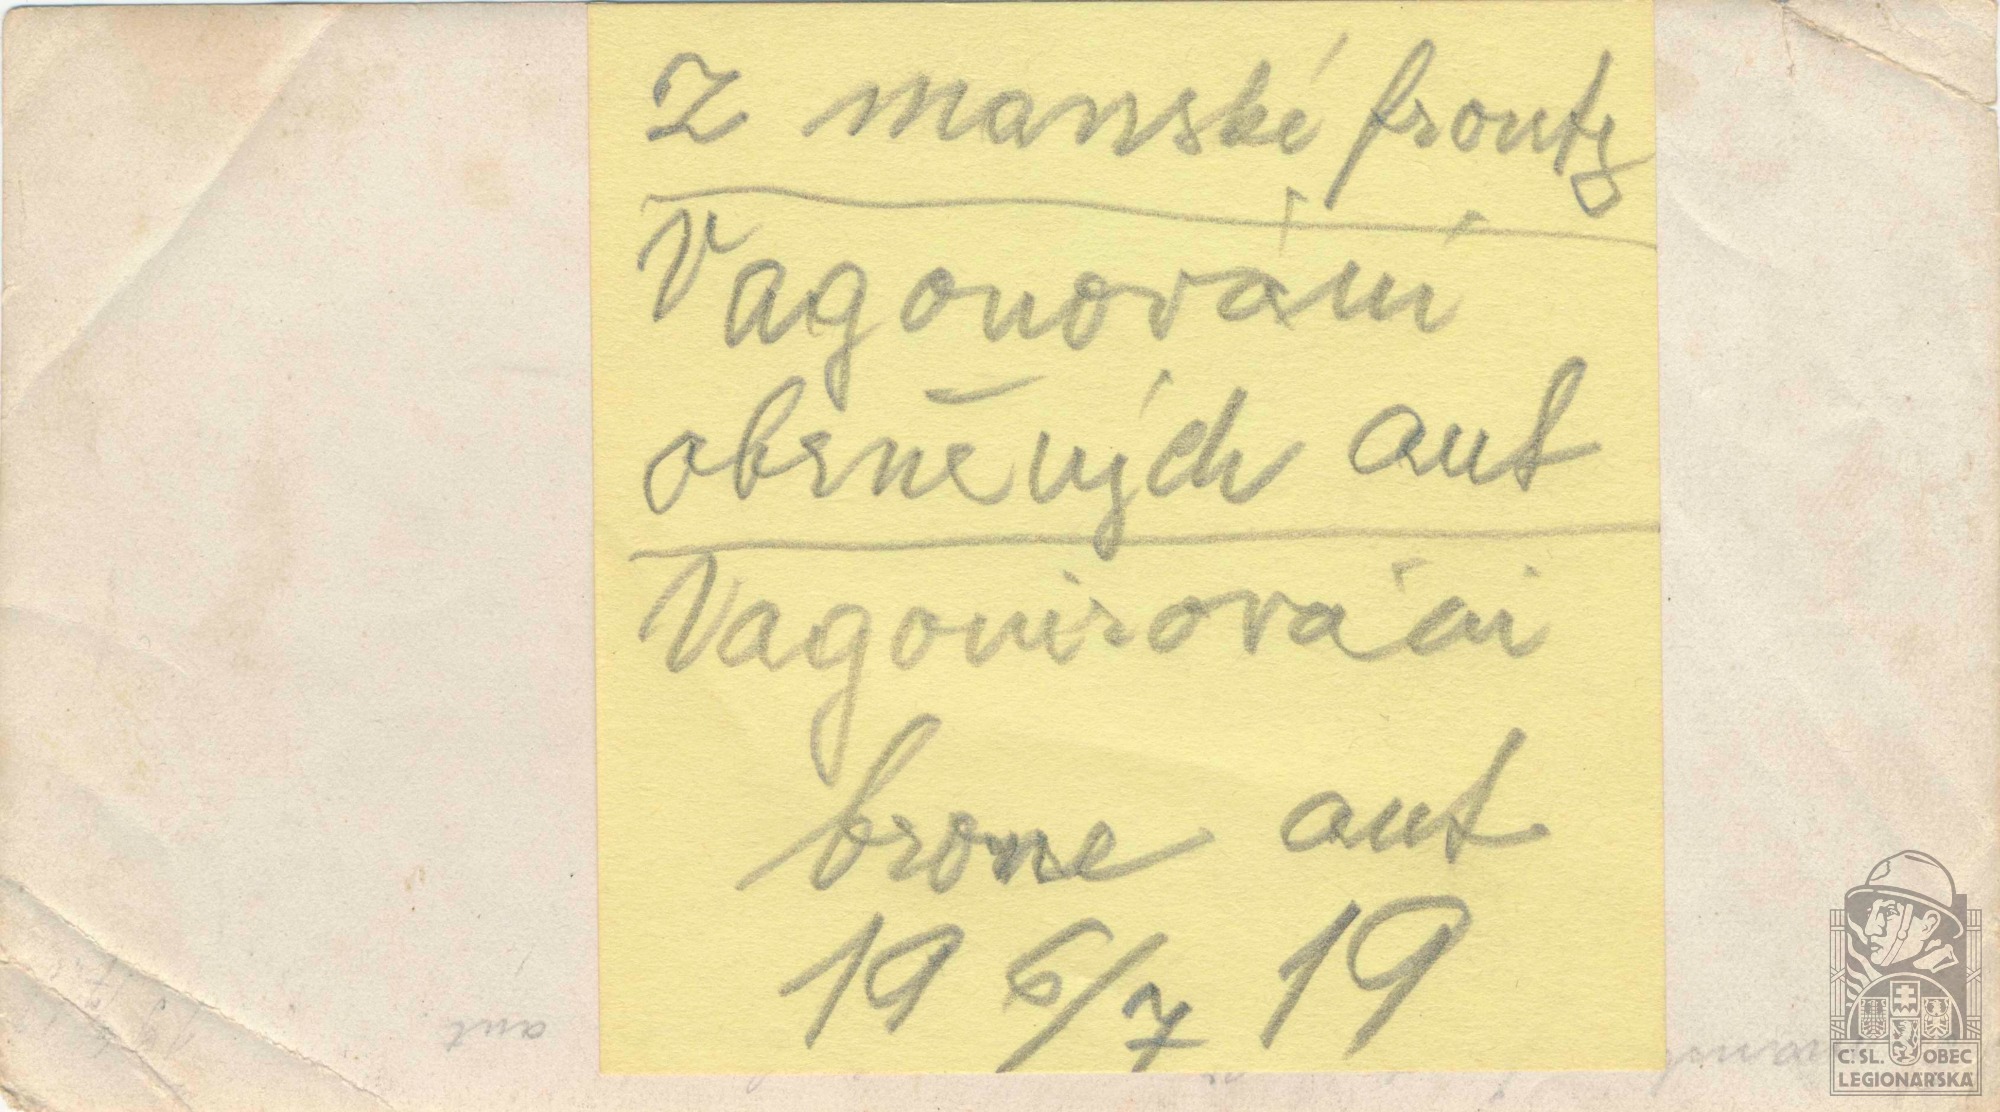 Z manské fronty
Vagonování
obrněných aut
Vagonirováni
brone aut
19 6/7 19
aut
Č.SL. OBEC
LEGIONÁŘSKÁ